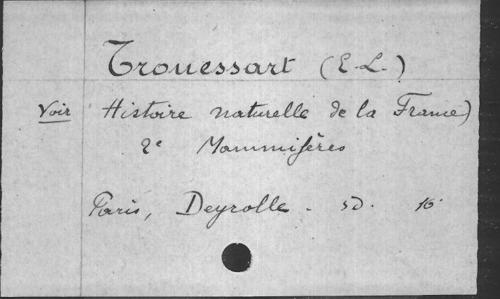 Trouessart (E-L.)
Voir Histoire naturelle de la France)
2e Mammifères
Paris, Deyrolle. sd. 16°